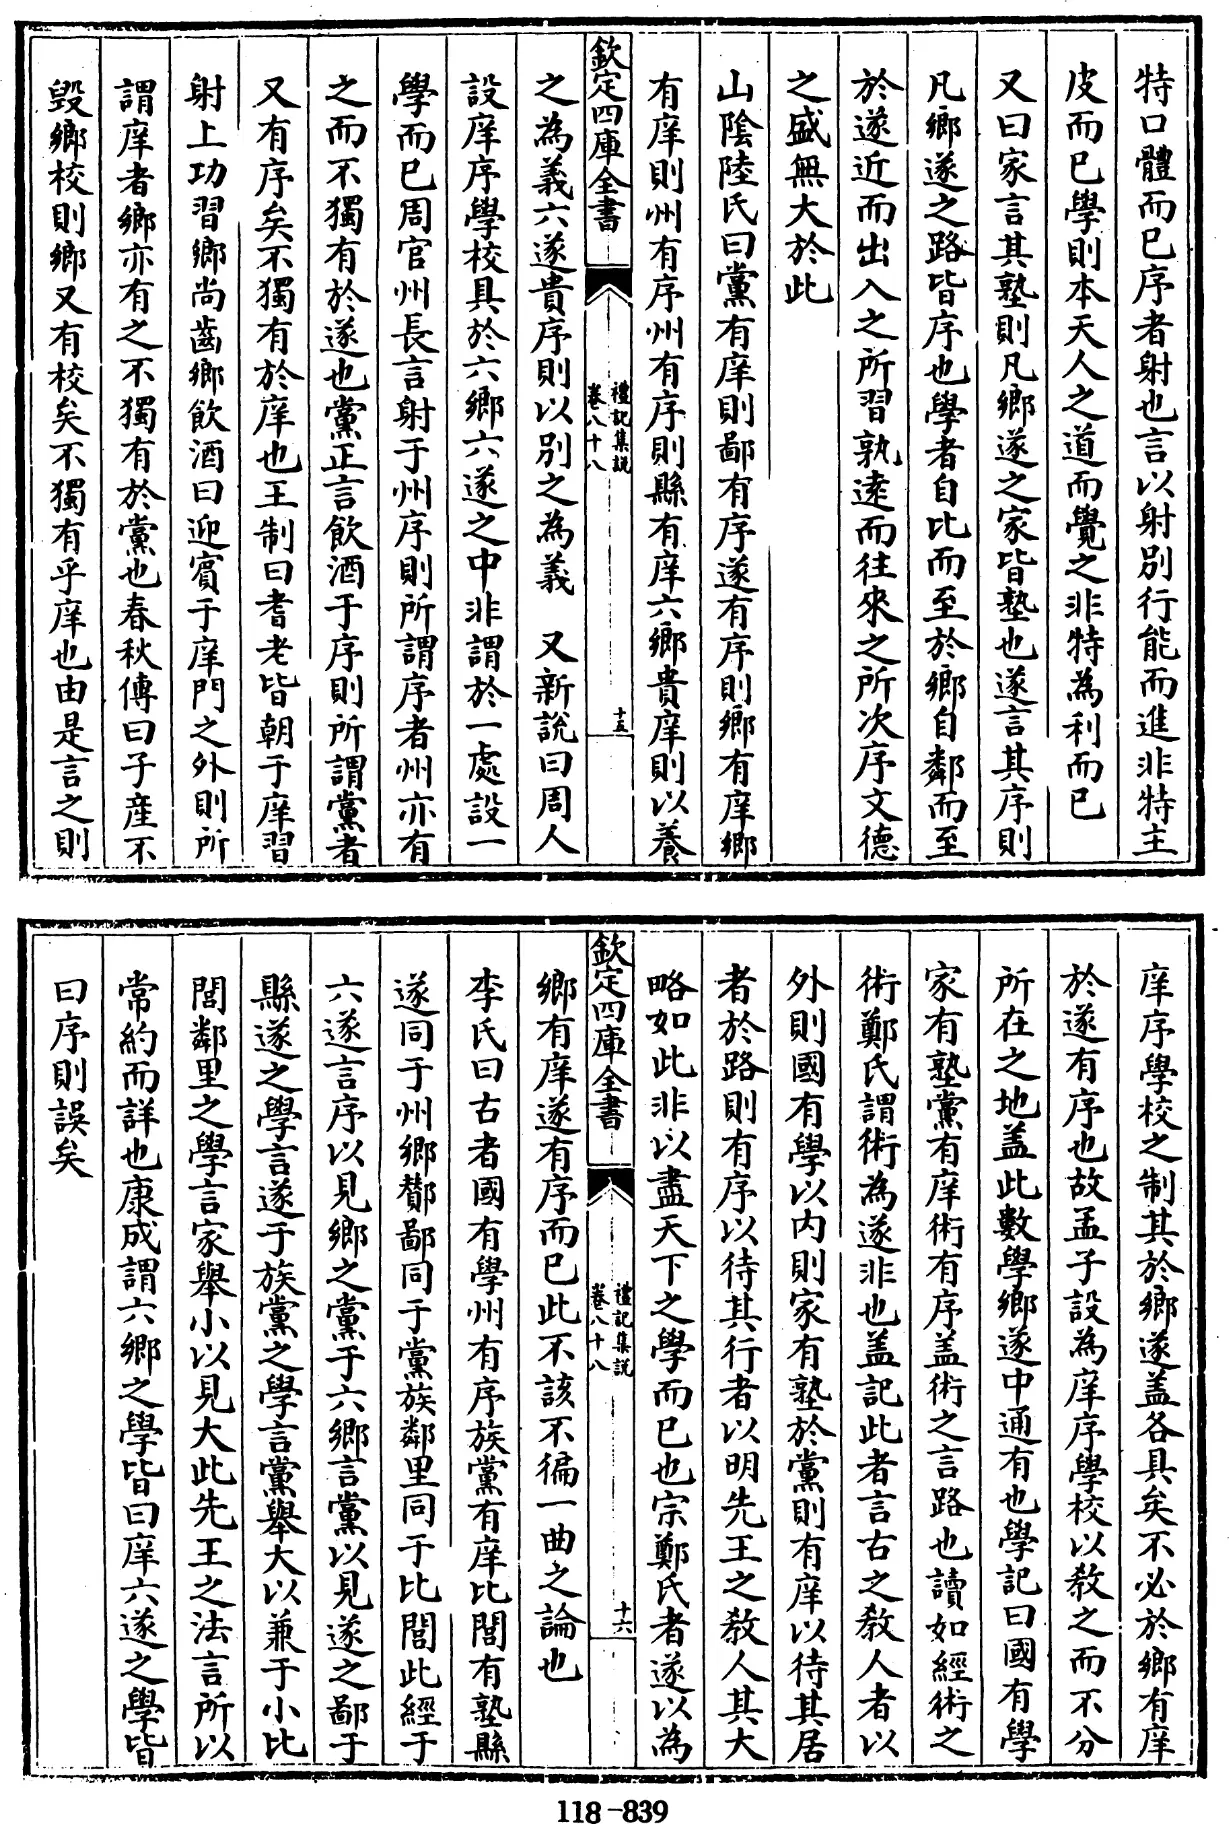 特口體而已序者射也言以射別行能而進非特主
皮而已學則本天人之道而覺之非特為利而已
又曰家言其塾則凡鄉遂之家皆塾也遂言其序則
凡鄉遂之路皆序也學者自比而至於鄉自鄰而至
於遂近而出入之所習孰逺而往來之所次序文德
之盛無大於此
山陰陸氏曰黨有庠則鄙有序遂有序則鄉有庠鄉
有庠則州有序州有序則縣有庠六鄉貴庠則以養
欽定四庫全書
禮記集說
卷八十八
十五
之為義六遂貴序則以別之為義　又新說曰周人
設庠序學校具於六鄉六遂之中非謂於一處設一
學而已周官州長言射于州序則所謂序者州亦有
之而不獨有於遂也黨正言飲酒于序則所謂黨者
又有序矣不獨有於庠也王制曰耆老皆朝于庠習
射上功習鄉尚齒鄉飲酒曰迎賔于庠門之外則所
謂庠者鄉亦有之不獨有於黨也春秋傳曰子產不
毀鄉校則鄉又有校矣不獨有乎庠也由是言之則
庠序學校之制其於鄉遂盖各具矣不必於鄉有庠
於遂有序也故孟子設為庠序學校以教之而不分
所在之地盖此數學鄉遂中通有也學記曰國有學
家有塾黨有庠術有序盖術之言路也讀如經術之
術鄭氏謂術為遂非也盖記此者言古之教人者以
外則國有學以内則家有塾於黨則有庠以待其居
者於路則有序以待其行者以明先王之教人其大
略如此非以盡天下之學而已也宗鄭氏者遂以為
欽定四庫全書
禮記集說
卷八十八
十六
鄉有庠遂有序而已此不該不徧一曲之論也
李氏曰古者國有學州有序族黨有庠比閭有塾縣
遂同于州鄉酇鄙同于黨族鄰里同于比閭此經于
六遂言序以見鄉之黨于六鄉言黨以見遂之鄙于
縣遂之學言遂于族黨之學言黨舉大以兼于小比
閭鄰里之學言家舉小以見大此先王之法言所以
常約而詳也康成謂六鄉之學皆曰庠六遂之學皆
曰序則誤矣
118-839